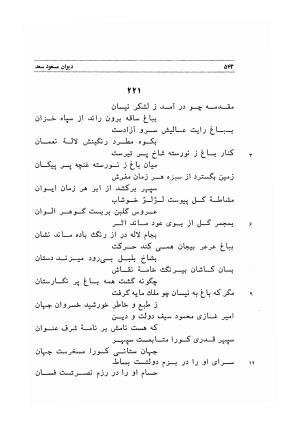 ۵۶۳ دیوان مسعود سعد
۲۲۱
مقدمه چو در آمد ز لشکر نیسان
بباغ ساقه برون راند از سپاه خزان
بباغ رایت عالیش سرو آزادست
بکوه مطرد رنگینش لالهٔ نعمان
۳ کنار باغ ز نورسته شاخ پر تیرست
میان باغ ز نورسته غنچه پر پیکان
زمین بگسترد از سبزه هر زمان مفرش
سپهر برکشد از ابر هر زمان ایوان
مشاطهٔ گل پیوست لؤلؤ خوشاب
عروس گلبن بربست گوهر الوان
۶ بمجمر گل از بوی عود ماند اثر
بجام لاله در از رنگ باده ماند نشان
بباغ عرعر بیجان همی کند حرکت
بشاخ بلبل بی‌رود میزند دستان
بسان کاشان بیرنگ خامهٔ نقاش
چگونه گشت همه باغ پر نگارستان
۹ مگر که باغ به نیسان چو ملك مایه گرفت
ز طبع و خاطر خورشید خسروان جهان
امیر غازی محمود سیف دولت و دین
که هست نامش بر نامهٔ شرف عنوان
سپهر قدری کورا متابعست سپهر
جهان ستانی کورا مسخرست جهان
۱۲ سرای او را در بزم دولتست بساط
حسام او را در رزم نصرتست فسان